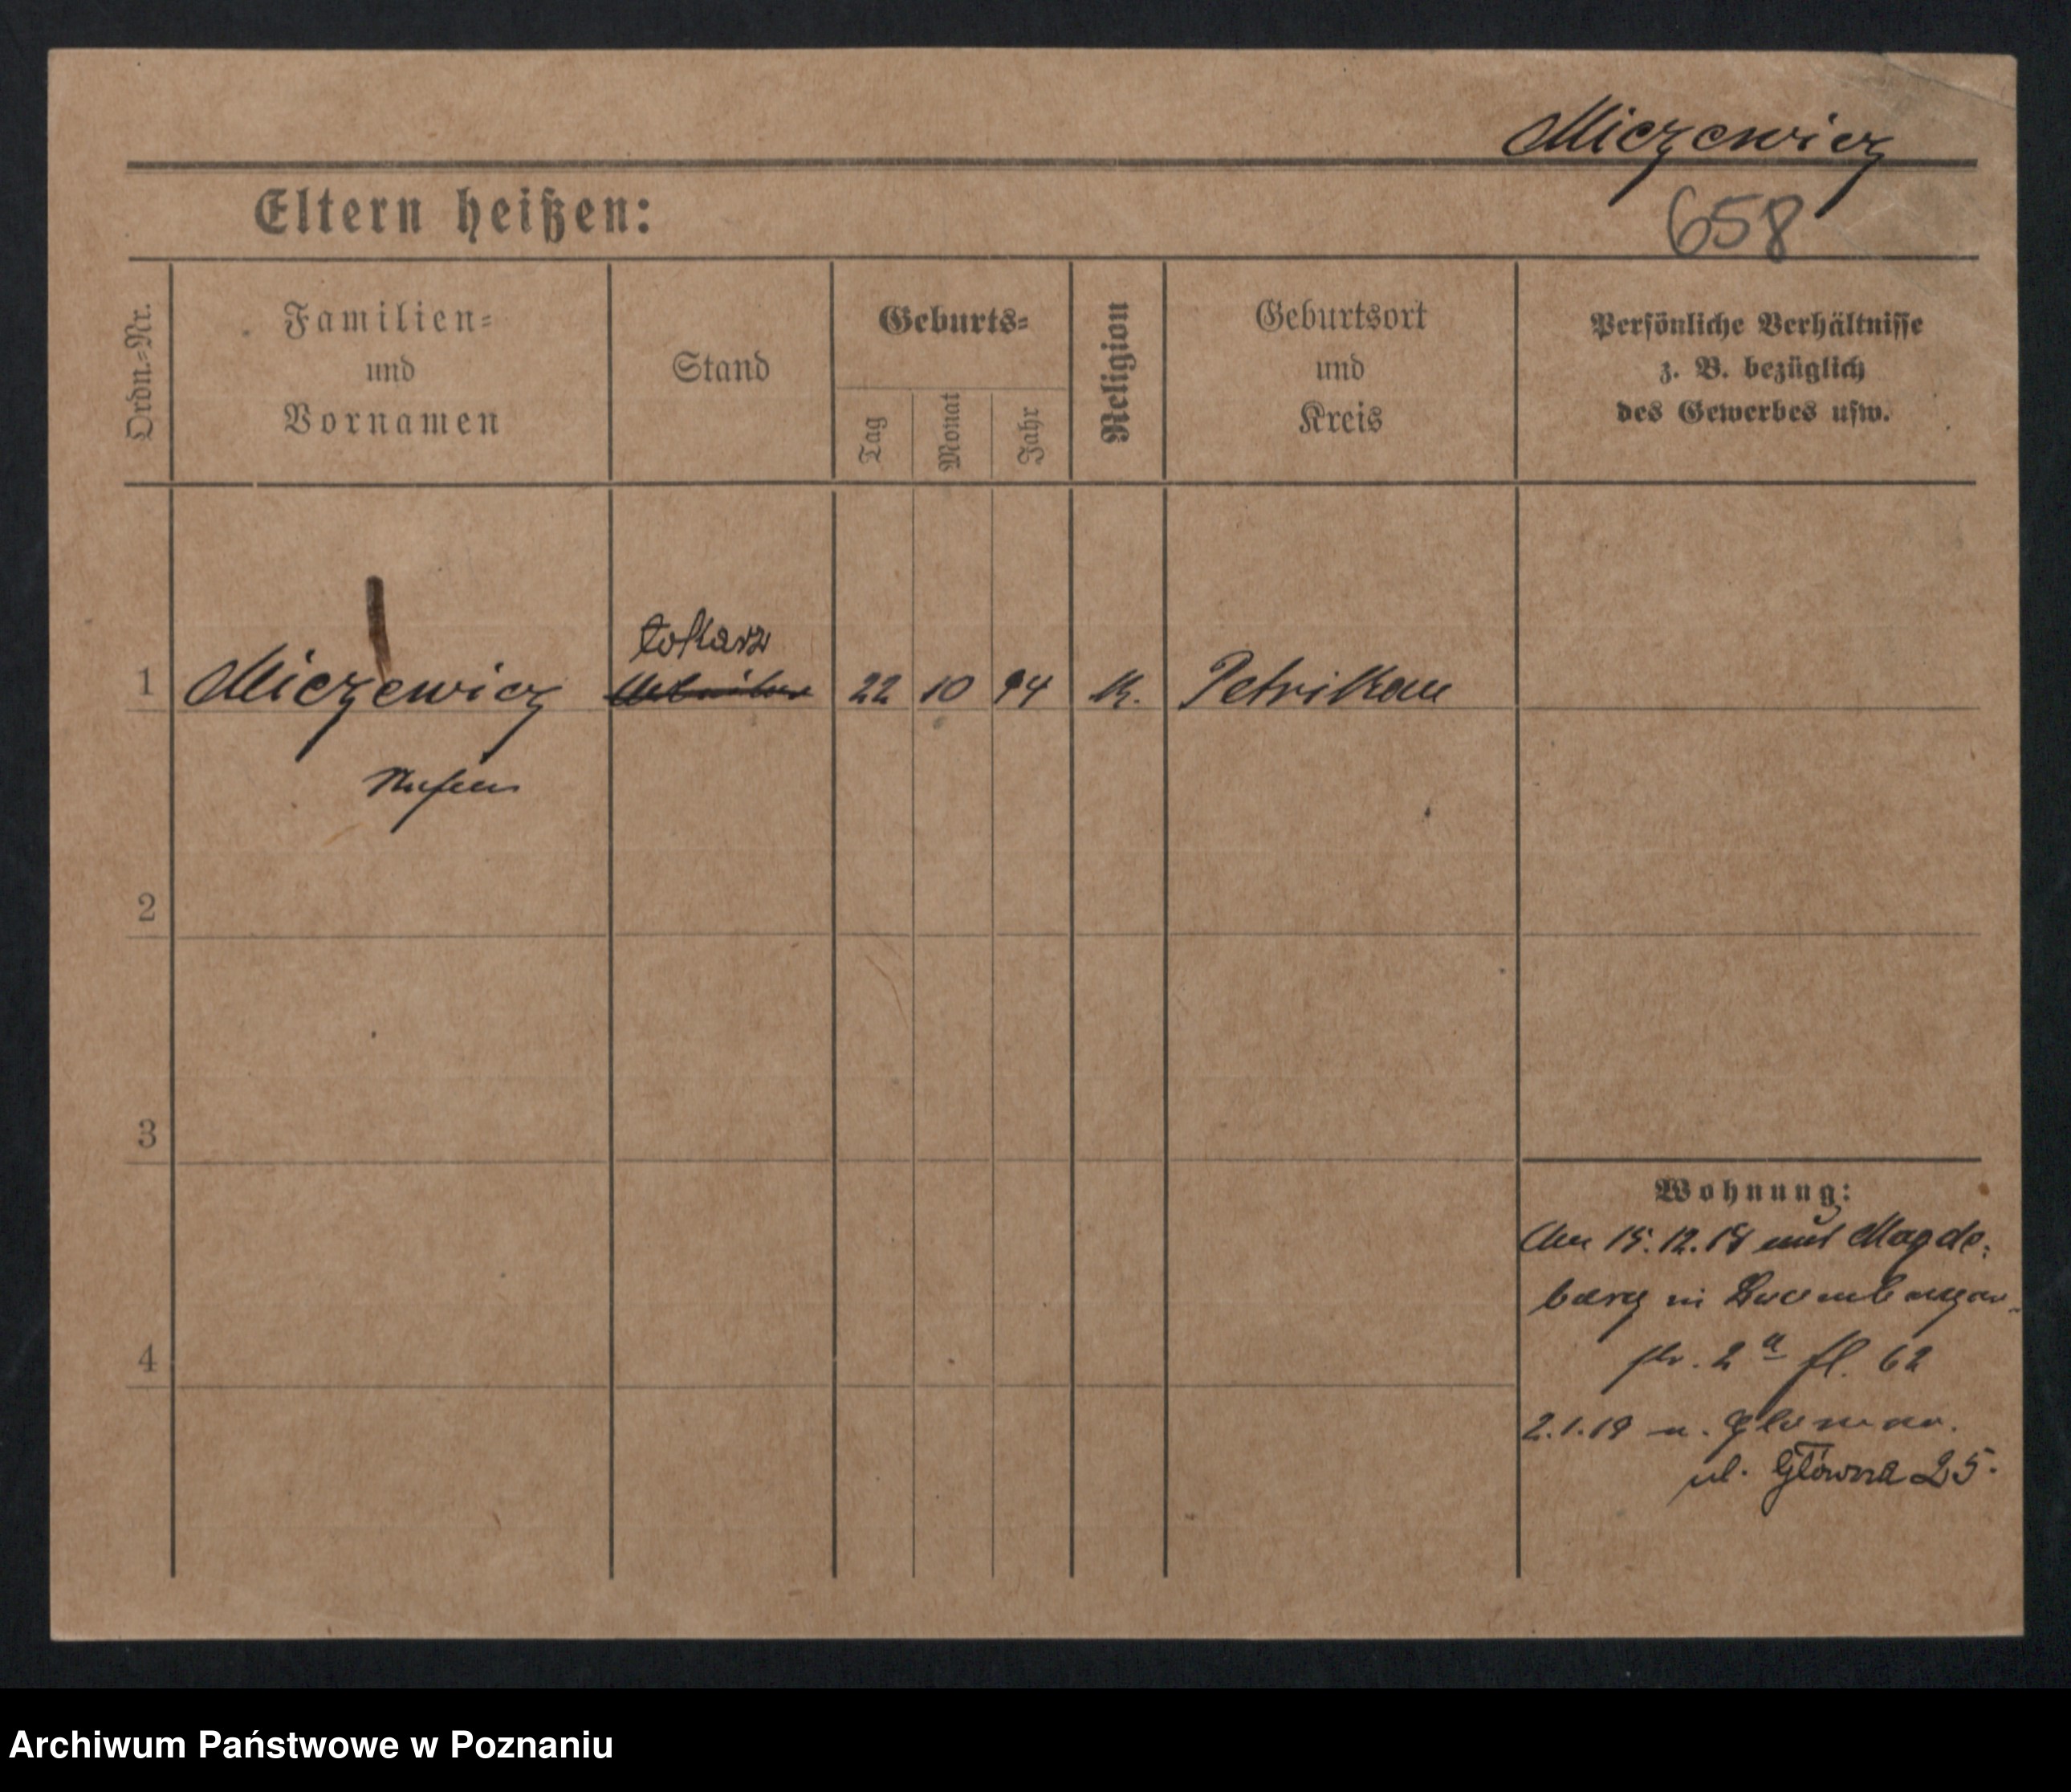 Miczewicz
658
Eltern heißen:
Ordn.-Nr.
Familien-
und
Vornamen
Stand
Geburts-
Tag
Monat
Jahr
Religion
Geburtsort
und
Kreis
Persönliche Verhältnisse
z. B. bezüglich
des Gewerbes usw.
tokarz
1 Miczewicz 22 10 94 k. Petrikau
2
3
4
Wohnung:
15.12.18 aus Magde-
burg in
str. 2 a fl. 62
2.1.19 n.
ul. Główna 25.
Archiwum Państwowe w Poznaniu